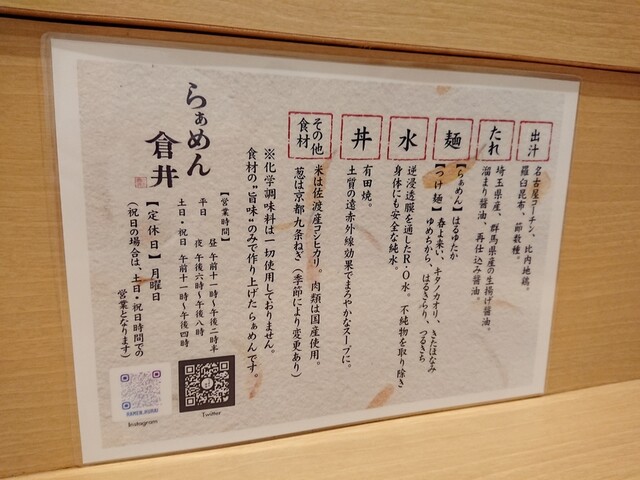 出汁
名古屋コーチン、比内地鶏。
羅臼昆布、節数種。
たれ
埼玉県産、群馬県産の生揚げ醤油。
溜まり醤油、再仕込み醤油。
麺
【らぁめん】はるゆたか
【つけ麺】春よ来い、キタノカオリ、きたほなみ
ゆめちから、はるきらり、つるきち
水
逆浸透膜を通したR・O水。不純物を取り除き
身体にも安全な純水。
丼
有田焼。
土質の遠赤外線効果でまろやかなスープに。
その他
食材
米は佐渡産コシヒカリ。肉類は国産使用。
葱は京都九条ねぎ（季節により変更あり）
※化学調味料は一切使用しておりません。
食材の“旨味”のみで作り上げたらぁめんです。
らぁめん
倉井
【営業時間】
平日 昼 午前十一時〜午後二時半
夜 午後六時〜午後八時
土日・祝日 午前十一時〜午後四時
【定休日】月曜日
（祝日の場合は、土日・祝日時間での
営業となります）
Twitter
RAMEN.KURAI
Instagram